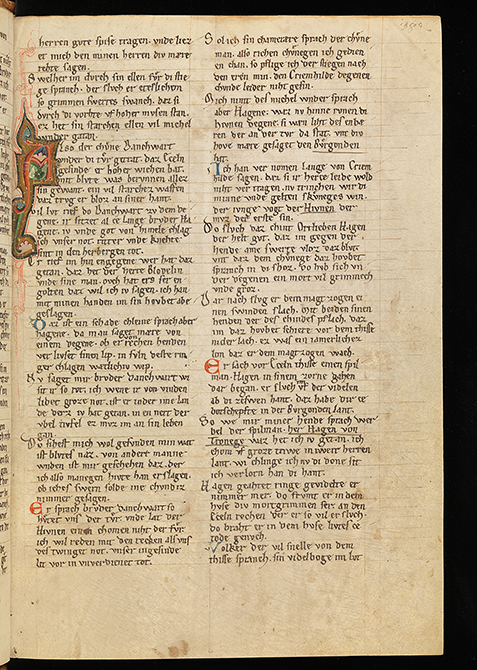 herren gůte spise tragen. vnde liez
er mich den minen herren div mære
rehte sagen.
Swelher im durch sin ellen fvr di stie
ge spranch. der slvch er etslichen
so grimmen swertes swanch. daz si
dvrch di vorhte vf hoher mvsen stan.
ez het sin starchez ellen vil michel
wnder getan.
Also der chvne Danchwart
vnder di tvr getrat. daz Ezeln
gesinde er hoher wichen bat.
mit blvte was berunnen allez
sin gewant. ein vil starchez waffen
daz trvg er bloz an siner hant.
Vil lvt rief do Danchwart zv dem de
gene. ir sitzet al ze lange brvder Ha
gene. iv vnde got von himele chlag
ich vnser not. ritter vnde knehte
sint in den herbergen tot.
Er rief im hin engegene wer hat daz
getan. daz hat der herre Blodelin
vnde sine man. ovch hat ers ser en
golten daz wil ich iv sagen. ich han
mit minen handen im sin hovbet abe
geslagen.
Daz ist ein schade chleine sprach aber
Hagene. da man saget mære von
einem degene. ob er von rechen henden
verlivset sinen lip. in svln deste rin
ger chlagen wætlichiv wip.
Nv saget mir brvder Danchwart wi
sit ir so rot. ich wene ir von wnden
lidet groze not. ist er inder ime lan
de derz iv hat getan. in en ner der
vbel tivfel ez mvz im an sin leben
gan.
Dv sihest mich wol gesvnden min wat
ist blvtes naz. von ander manne
wnden ist mir geschehen daz. der
ich also manegen hivte han erslagen.
ob ichs swern solde ine chvndiz
nimmer gesagen.
Er sprach brvder Danchwart so
hvtet vns der tvr. vnde lat der
Hivnen einen chomen niht der fvr.
ich wil reden mit den recken als vns
des twinget not. vnser ingesinde
lit vor in vnverdienet tot.
Sol ich sin chamerære sprach der chvne
man. also richen chvnegen ich gedien
en chan. so pflige ich der stiegen nach
den eren min. den Criemhilde degenen
chvnde leider niht gesin.
Mich nimt des michel wnder sprach
aber Hagene. waz nv hinne rvnen di
Hivnen degene. si wæn liht des enbæ
ren der an der tvr da stat. vnt div
hove mære gesaget den Bvrgonden
hat.
Ich han vernomen lange von Criem
hilde sagen. daz si ir herce leide wold
niht vertragen. nv trinchen wir di
minne vnde gelten skvneges win.
der ivnge voget der Hivnen der
mvz der erste sin.
Do slvch daz chint Ortlieben Hagen
der helt gvt. daz im gegen der
hende ame swerte vloz daz blvt.
vnt daz dem chvnege daz hovbet
spranch in di shoz. do hvb sich vn
der degenen ein mort vil grimmech
vnde groz.
Dar nach slvg er dem magezogen ei
nen swinden slach. mit beiden sinen
henden der des chindes pflach. daz
im daz hovbet schiere vor dem tissce
nider lach. ez was ein iamerlicher
lon daz er dem magezogen wach.
Er sach vor Ezeln tisse einen spil
man. Hagen in sinem zorne gahen
dar began. er slvch im vf der videlen
ab di zeswen hant. daz habe dir ze
botschefte in der Bvrgonden lant.
So we mir miner hende sprach wer
bel der spilman. her Hagen von
Tronege waz het ich iv getan. ich
chom vf groze triwe in iwerr herren
lant. wi chlinge ich nv di done sit
ich verlorn han di hant.
Hagen geahtet ringe gevidelte er
nimmer mer. do frvmt er in dem
hvse div mortgrimmen ser. an den
Ezeln rechen der er so vil erslvch.
do braht er in dem hvse livtes ce
tode genvch.
Volker der vil snelle von dem
tisse spranch. sin videlboge im lvt